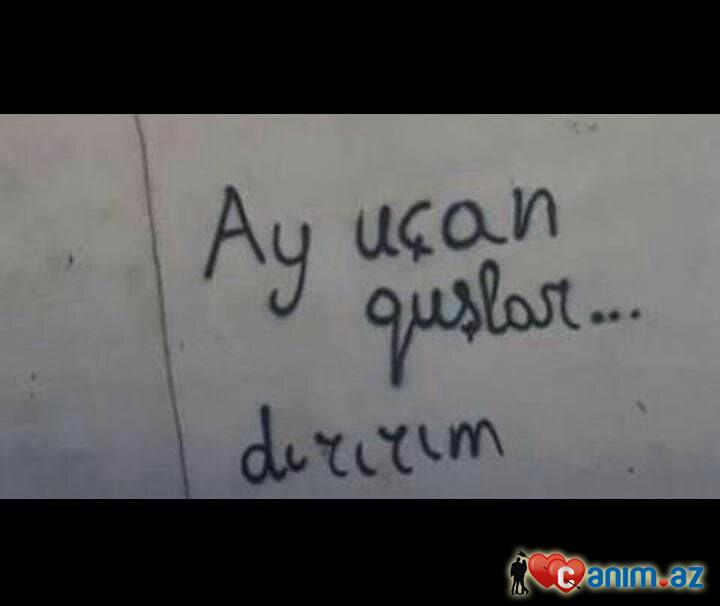 Ay uçan
quşlar...
dırırım
Canım.az